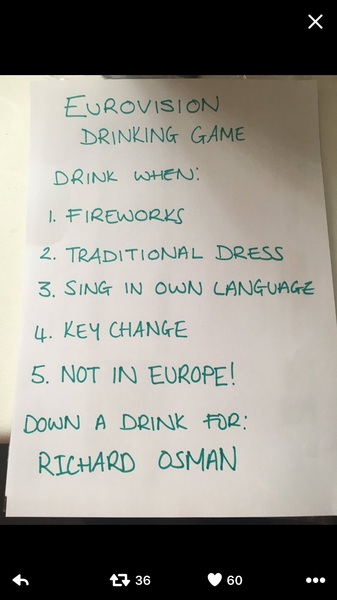 EUROVISION
DRINKING GAME
DRINK WHEN:
1. FIREWORKS
2. TRADITIONAL DRESS
3. SING IN OWN LANGUAGE
4. KEY CHANGE
5. NOT IN EUROPE!
DOWN A DRINK FOR:
RICHARD OSMAN
36
60